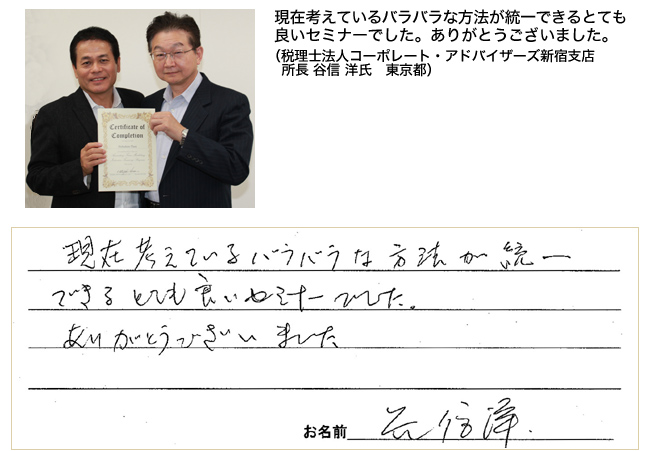 現在考えているバラバラな方法が統一できるとても
良いセミナーでした。ありがとうございました。
（税理士法人コーポレート・アドバイザーズ新宿支店
所長 谷信 洋氏　東京都）
Certificate of
Completion
現在考えているバラバラな方法が統一
できるとても良いセミナーでした。
ありがとうございました
お名前 谷信洋.